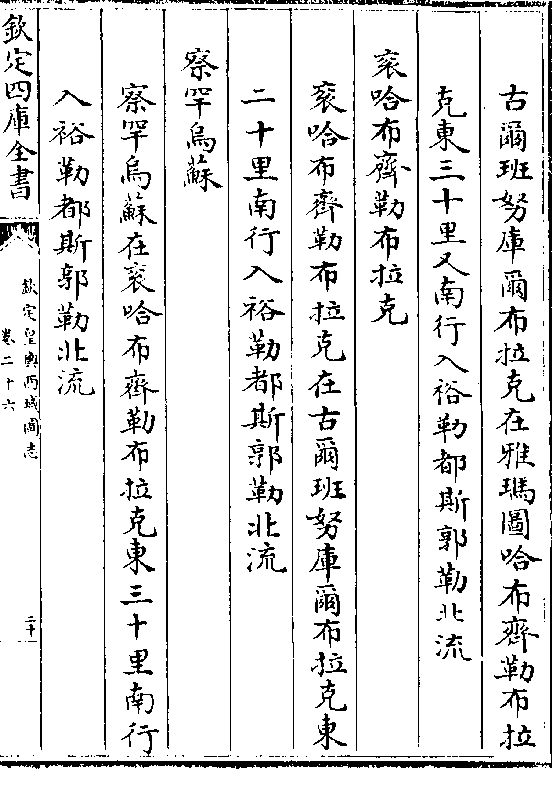 古爾班努庫爾布拉克在雅瑪圖哈布齊勒布拉
克東三十里又南行入裕勒都斯郭勒北流
衮哈布齊勒布拉克
衮哈布齊勒布拉克在古爾班努庫爾布拉克東
二十里南行入裕勒都斯郭勒北流
察罕烏蘇
察罕烏蘇在衮哈布齊勒布拉克東三十里南行
入裕勒都斯郭勒北流
欽定四庫全書
欽定皇輿西域圖志
卷二十六
二十